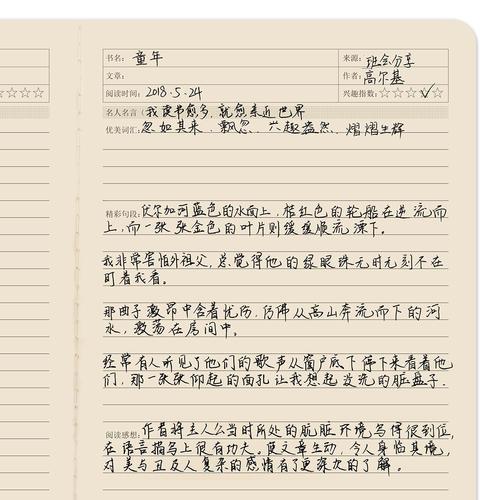 书名: 童年
来源: 班会分享
文章:
作者: 高尔基
阅读时间: 2018.5.24
兴趣指数: ☆☆☆☆☆
名人名言 (我读书愈多,就愈亲近世界
优美词汇: 忽如其来、飘忽、兴趣盎然、熠熠生辉
精彩句段: 伏尔加河蓝色的水面上,桔红色的轮船在逆流而
上,而一张张金色的叶片则缓缓顺流漂下。
我非常害怕外祖父,总觉得他的绿眼珠无时无刻不在
盯着我看。
那曲子激昂中含着忧伤,仿佛从高山奔流而下的河
水,激荡在房间中。
经常有人听见了他们的歌声从窗户底下停下来看着他
们,那一张张仰起的面孔让我想起没洗的脏盘子.
阅读感想: 作者将主人公当时所处的肮脏环境写得很到位,
在语言描写上很有功夫。使文章生动,令人身临其境,
对美与丑及人复杂的感情有了更深次的了解。